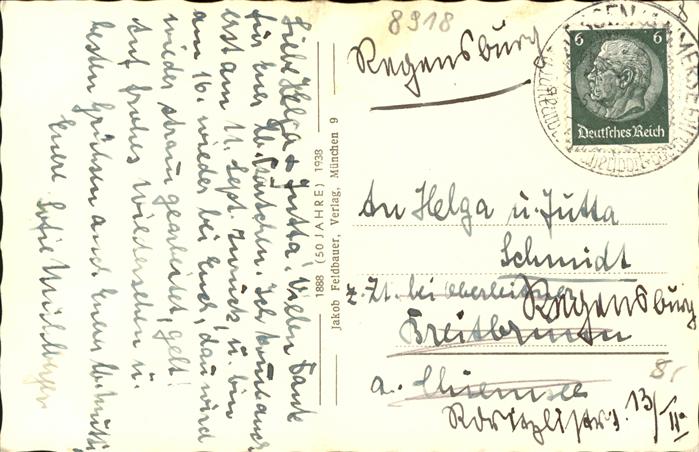 Liebe Helga & Jutta! Vielen Dank
für Euer Kärtchen. Ich komme
erst am 11. Sept. zurück u. bin
am 16. wieder bei Euch, dann wird
wieder stramm gearbeitet, gelt!
Auf frohes Wiedersehen u.
besten Grüßen auch Eurer
Eure Sofie
1888 (50 JAHRE) 1938
Jakob Feldbauer, Verlag, München 9
8918
Regensburg
6 6
Deutsches Reich
8
An Helga u. Jutta
Schmidt
z. Zt. bei Oberleitner
Regensburg
Breitbrunn
a. Chiemsee
8.
13/II